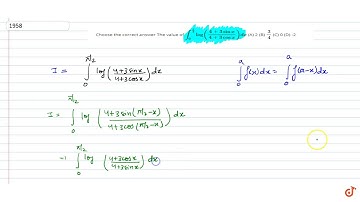 1958
Choose the correct answer The value of ∫ log((4+3sinx)/(4+3cosx)) dx (A) 2 (B) 3/4 (C) 0 (D) -2
I = ∫₀^(π/2) log((4+3sinx)/(4+3cosx)) dx    ∫₀^a f(x)dx = ∫₀^a f(a-x)dx
I = ∫₀^(π/2) log((4+3sin(π/2-x))/(4+3cos(π/2-x))) dx
∫₀^(π/2) log((4+3cosx)/(4+3sinx)) dx